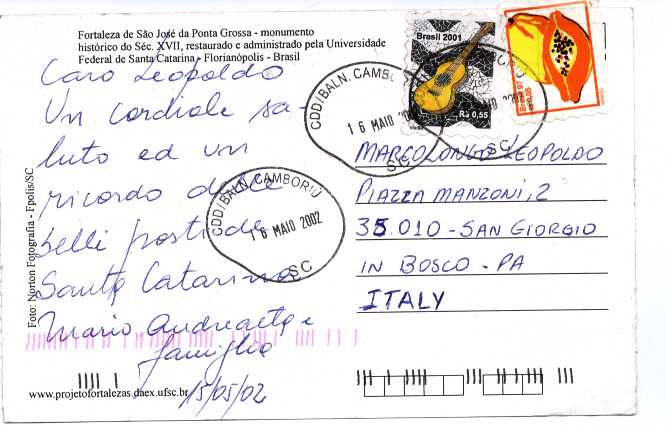 Fortaleza de São José da Ponta Grossa - monumento
histórico do Séc. XVII, restaurado e administrado pela Universidade
Federal de Santa Catarina - Florianópolis - Brasil
Caro Leopoldo
Un cordiale sa-
luto ed un
ricordo dalle
belli posti de
Santa Catarina
Mario Andreatta e
famiglia
15/05/02
Foto: Norton Fotografia - Fpolis/SC
www.projetofortalezas.daex.ufsc.br
Brasil 2001
R$ 0,55
Brasil 97
CDD/BALN. CAMBORIÚ
16 MAIO 2002
SC
CDD/BALN. CAMBO
16 MAIO 20
SC
2002
SC
MARCOLONGO LEOPOLDO
PIAZZA MANZONI, 2
35.010 - SAN GIORGIO
IN BOSCO - PA
ITALY